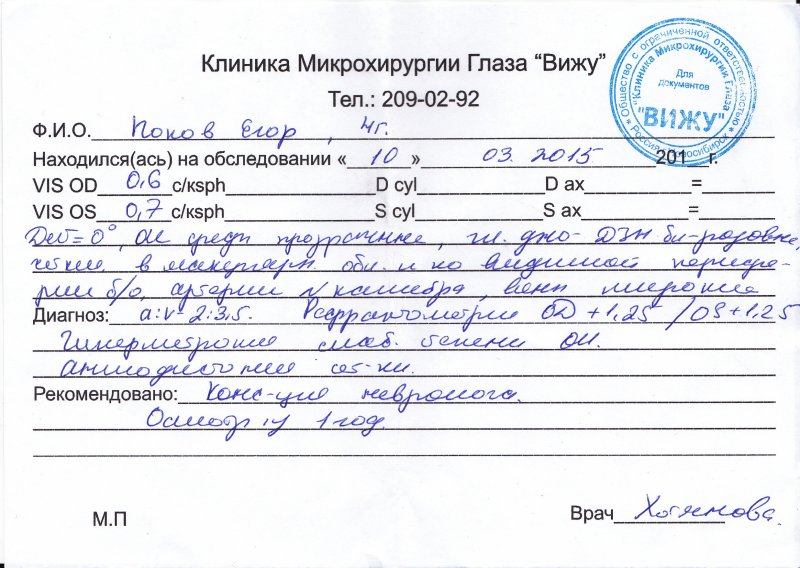 Клиника Микрохирургии Глаза “Вижу”
Тел.: 209-02-92
Общество с ограниченной ответственностью
"Клиника Микрохирургии Глаза
Для документов
"ВИЖУ"
Россия Новосибирск
Ф.И.О. Попов Егор, 4г.
Находился(ась) на обследовании « 10 » 03. 2015 201 г.
VIS OD 0,6 с/кsph D cyl D ax =
VIS OS 0,7 с/кsph S cyl S ax =
Dev=0°, ОИ среды прозрачные, гл. дно- ДЗН бл-розовые,
четкие, в макулярн. обл. и на видимой перифе-
рии б/о, артерии N калибра, вены широкие
Диагноз: a:v 2:3,5. Рефрактометрия OD +1,25 / OS +1,25
Гиперметропия слаб. степени ОИ.
Ангиодистония сет-ки.
Рекомендовано: Конс-ция невролога.
Осмотр ч/ 1 год.
М.П
Врач